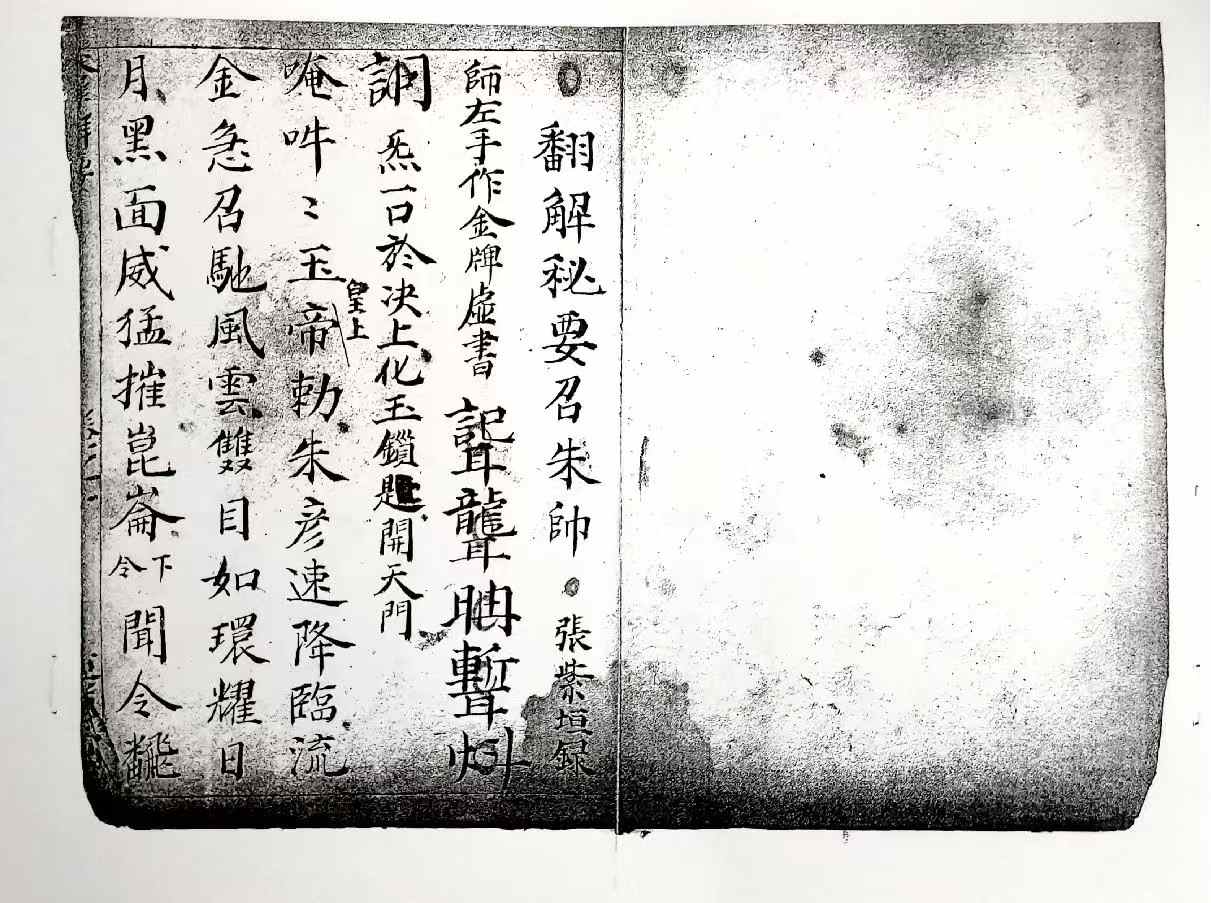 翻解秘要召朱帥　張紫垣録
師左手作金牌虛書
炁一口於决上化玉鎖匙開天門
唵吽〻玉帝勅朱彦速降臨流
皇上
金急召馳風雲雙目如環耀日
月黑面威猛摧崑崙
下令
聞令飜